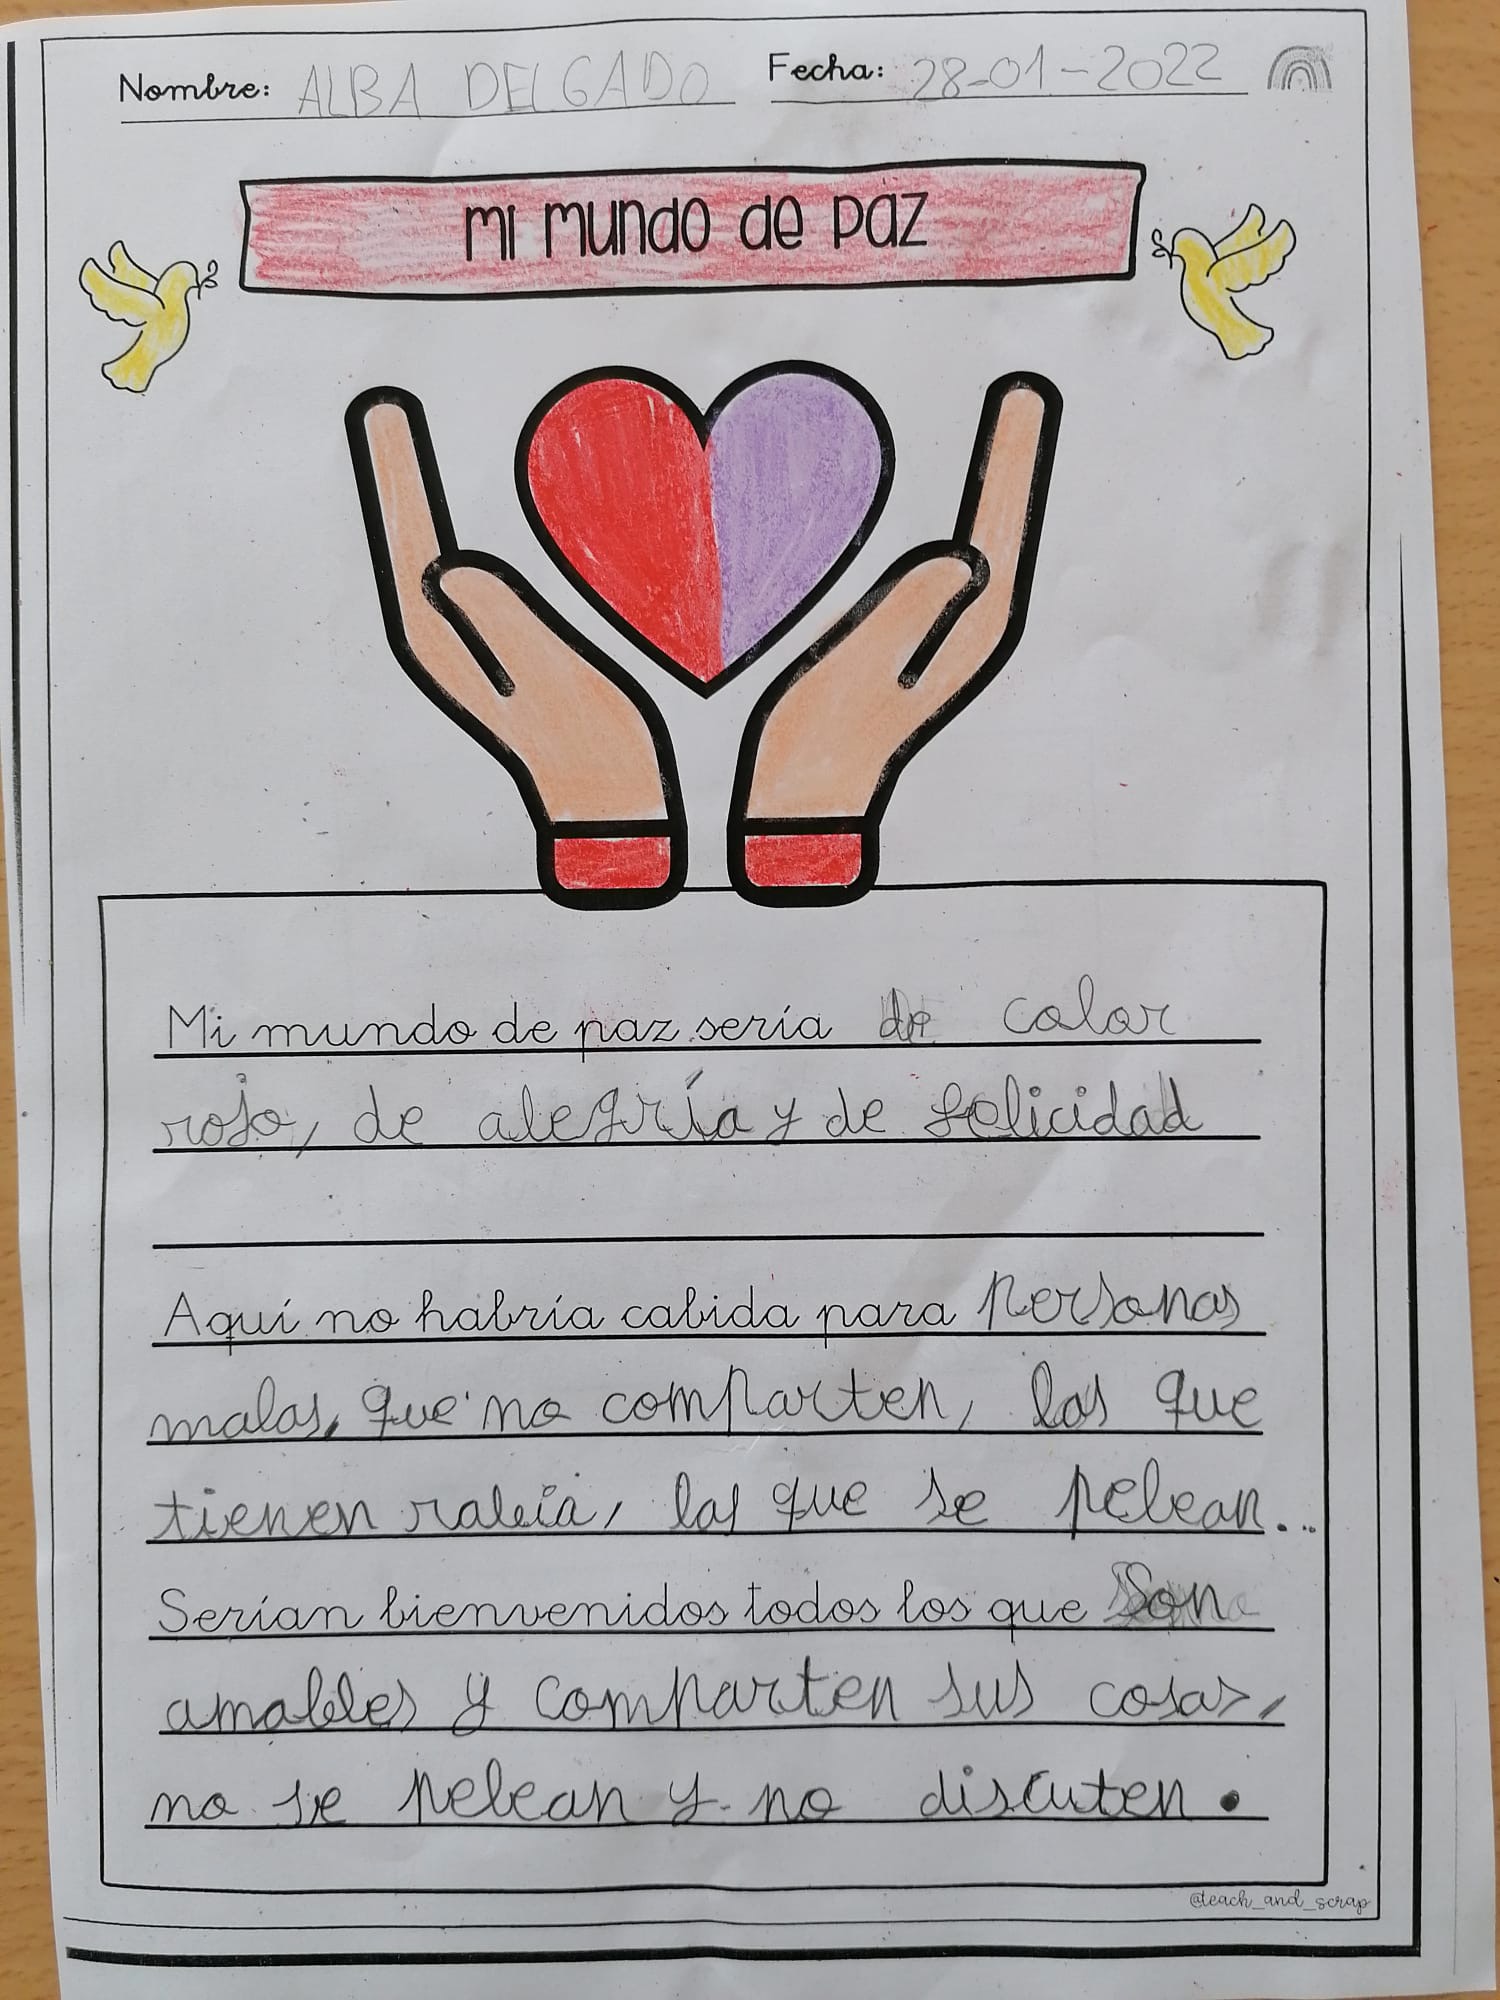 Nombre: ALBA DELGADO Fecha: 28-01-2022
mi mundo de paz
Mi mundo de paz sería de color
rojo, de alegría y de felicidad
Aquí no habría cabida para personas
malas, que no comparten, las que
tienen rabia, las que se pelean...
Serían bienvenidos todos los que son
amables y comparten sus cosas,
no se pelean y no discuten.
@teach_and_scrap